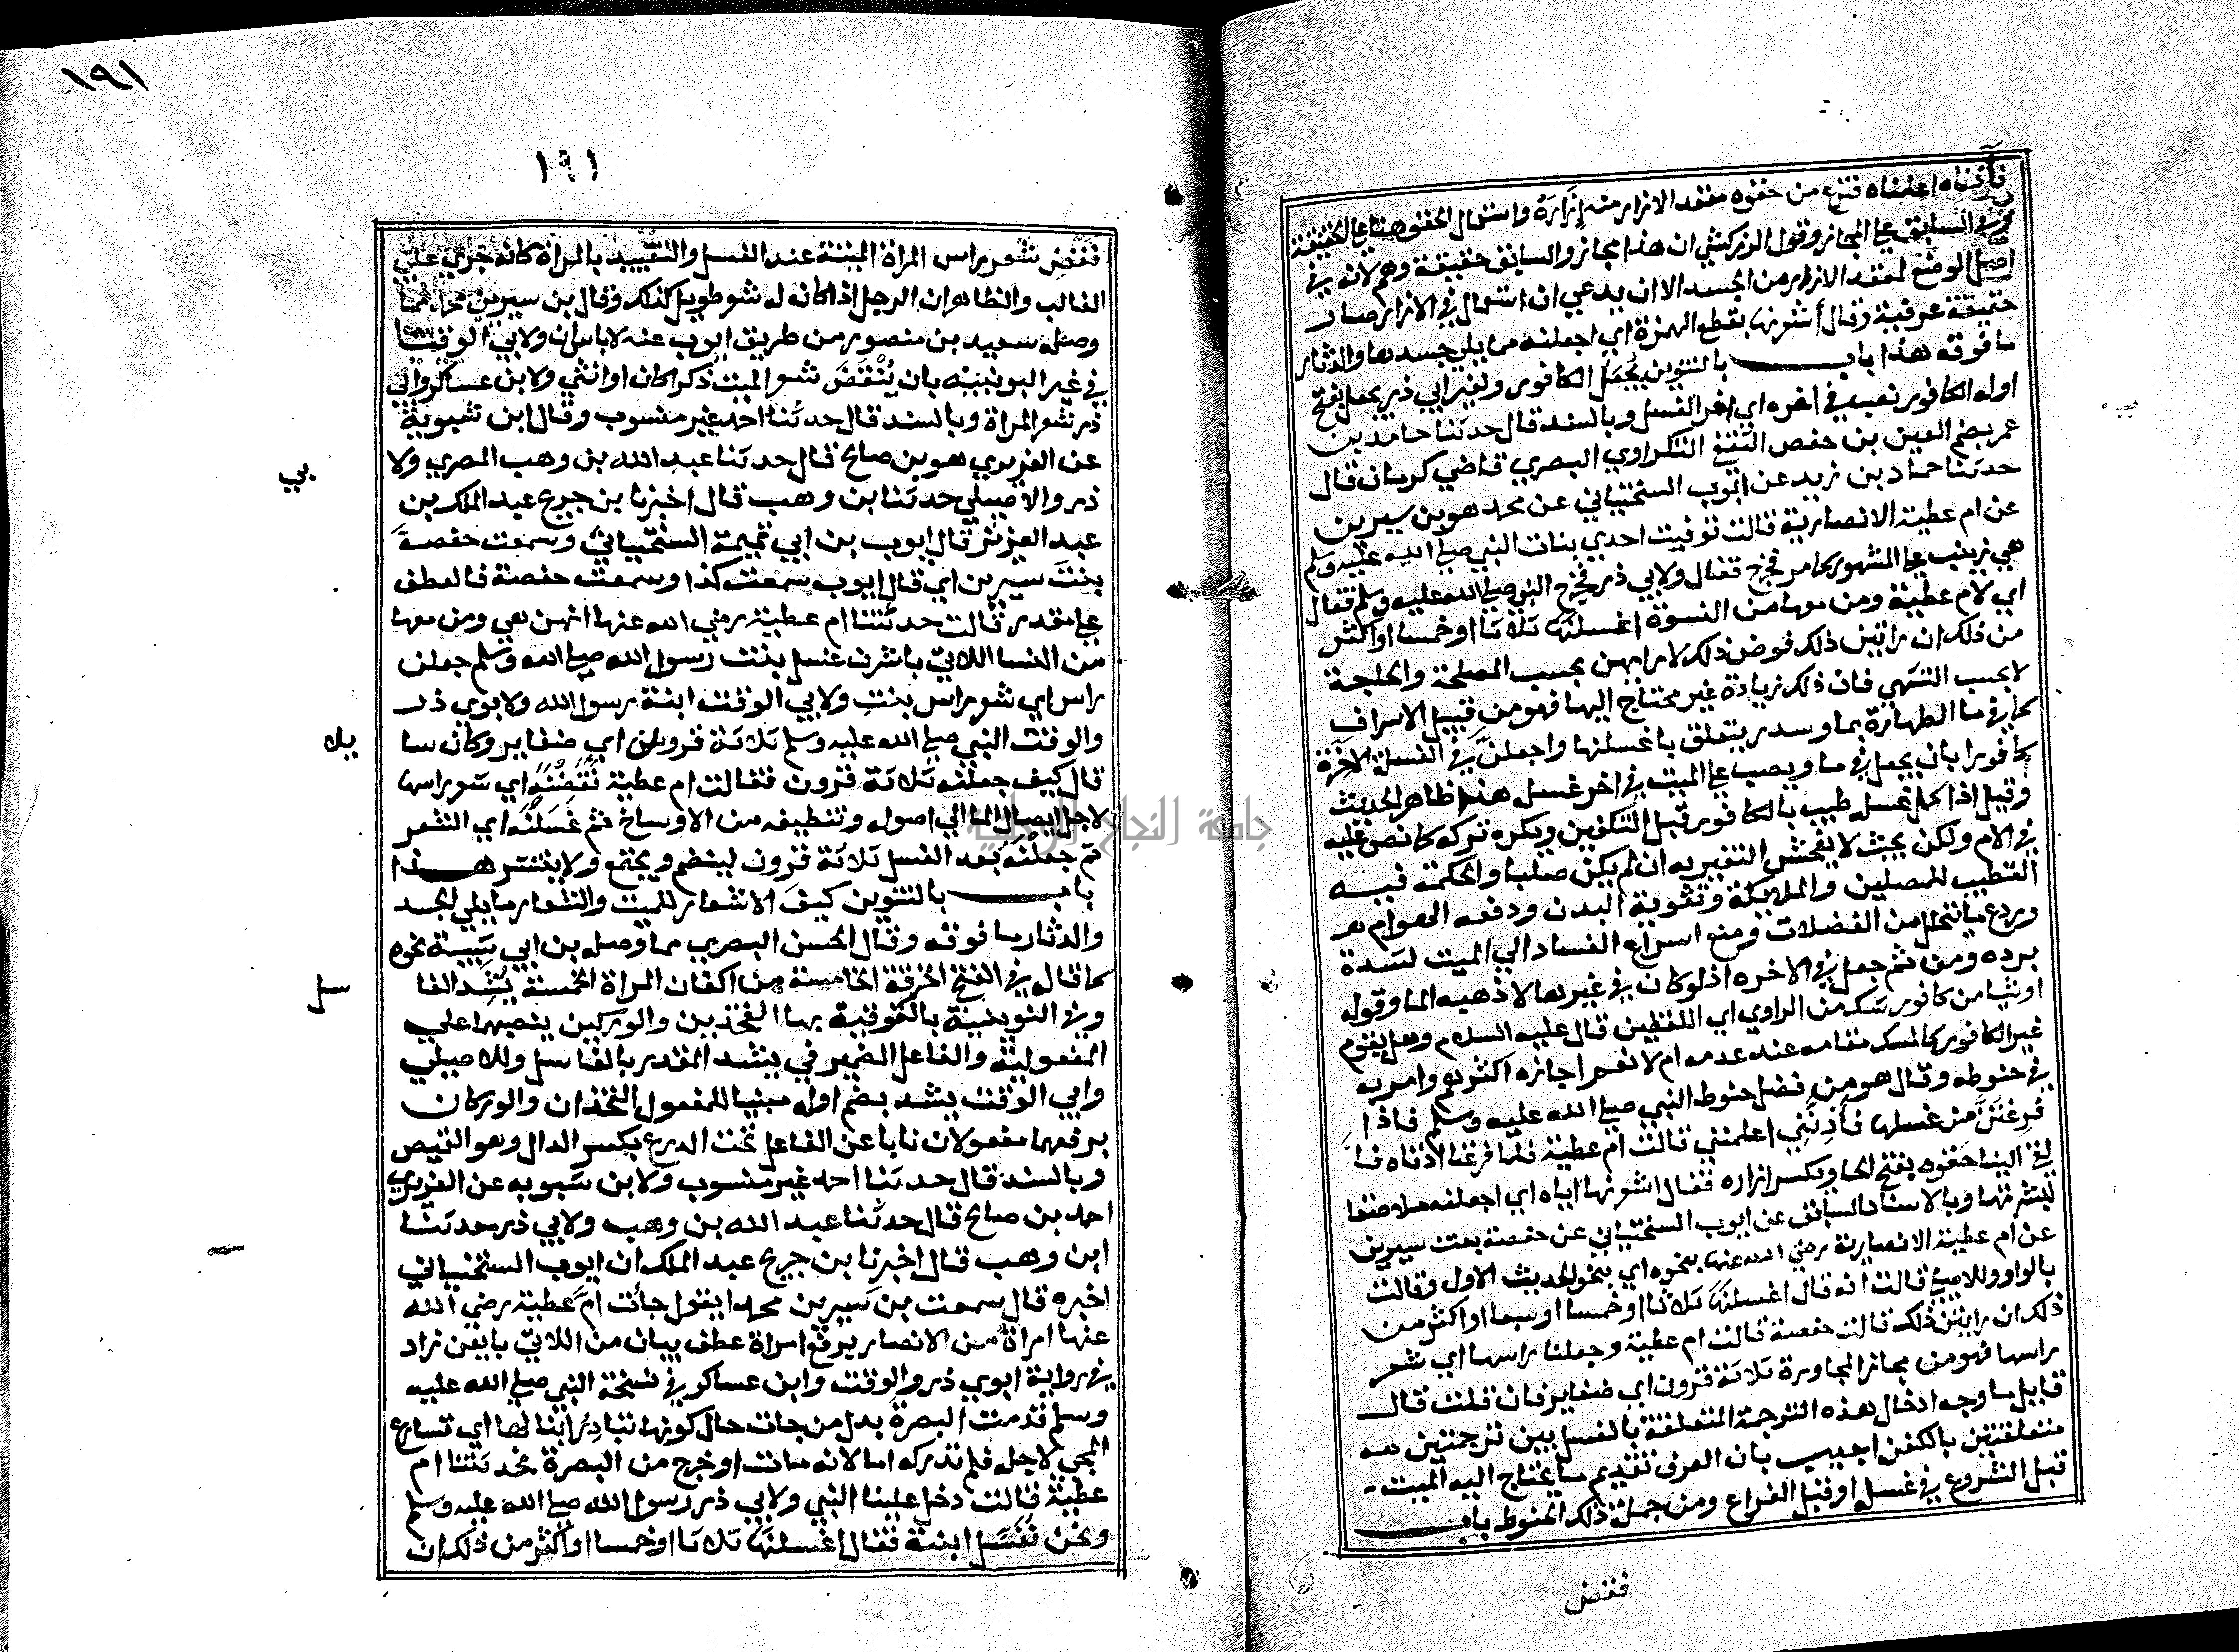 فآذناه اعلمناه فنزع من حقوه معقد الازار منه إزَارَهُ واستعمال الحقو هنا على الحقيقة
وفي السابق على المجاز وقول الزركشي ان هذا مجاز والسابق حقيقة وهم لانه في
اصل الوضع لمعقد الازار من الجسد الا ان يدعي ان استعمال في الازار صار
حقيقة عرفية وقال أشعرنها بقطع الهمزة اي اجعلنه مما يلي جسدها والدثار
ما فوقه هذا باب بالتنوين يُجعل الكافور ولغير ابي ذر يجعل بفتح
اوله الكافور نصب في اخره اي اخر الغسل وبالسند قال حدثنا حامد بن
عمر بضم العين بن حفص الثقفي البكراوي البصري قاضي كرمان قال
حدثنا حماد بن زيد عن ايوب السختياني عن محمد هو بن سيرين
عن ام عطية الانصارية قالت توفيت احدي بنات النبي صلى الله عليه وسلم
هي زينب على المشهور كما مر فخرج فقال ولابي ذر فخرج النبي صلى الله عليه وسلم فقال
اي لام عطية ومن معها من النسوة اغسلنها ثلاثا او خمسا او اكثر
من ذلك ان راتين ذلك فوض ذلك لارايهن بحسب المصلحة والحاجة
لا بحسب التشهي فان ذلك زيادة غير محتاج اليها فهو من قبيل الاسراف
كما في ما الطهارة بما وسدر يتعلق باغسلنها واجعلن في الغسلة الاخرة
كافورا بان يجعل في ما ويصب على الميت في اخر غسل هذا ظاهر الحديث
وقيل اذا كمل غسل طيب بالكافور قبل التكفين ويكره تركه كما نص عليه
في الام ولكن بحيث لا يفحش التغير به ان لم يكن صلبا والحكمة فيه
التطيب للمصلين والملائكة وتقوية البدن ودفعه الهوام
وردع ما يتحلل من الفضلات ومنع اسراع الفساد الي الميت لشدة
برده ومن ثم جعل في الاخره اذ لو كان في غيرها لاذهبه الما وقوله
او شيا من كافور شك من الراوي اي اللفظين قال عليه السلام وهل يقوم
غير الكافور كالمسك مقامه عند عدمه ام لا نعم اجازه اكثرهم وامر به
في حنوطه وقال هو من فضل حنوط النبي صلى الله عليه وسلم فاذا
فرغتن من غسلها فآذِنَّنِي اعلمنني قالت ام عطية فلما فرغنا اذناه فا
لقى الينا حَقوه بفتح الحا وبكسر ازاره فقال اشعرنها اياه اي اجعلنه ملاصقا
لبشرتها وبالاسناد السابق عن ايوب السختياني عن حفصة بنت سيرين
عن ام عطية الانصارية رضي الله عنها بنحوه اي بنحو الحديث الاول وقالت
بالواو وللاصيلي قالت انه قال اغسلنها ثلاثا او خمسا او سبعا او اكثر من
ذلك ان رايتن ذلك قالت حفصة قالت ام عطية وجعلنا راسها اي شعر
راسها فهو من مجاز المجاورة ثلاثة قرون اي ضفاير فان قلت قال
قايل ما وجه ادخال هذه الترجمة المتعلقة بالغسل بين ترجمتين
متعلقتين بالكفن اجيب بان العرف تقديم ما يحتاج اليه الميت
قبل الشروع في غسل او قبل الفراغ ومن جملة ذلك الحنوط باب
نقض
١٩١
١٩١
نقض شعر راس المراة الميتة عند الغسل والتقييد بالمراة كانه جري علي
الغالب والظاهر ان الرجل اذا كان له شعر طويل كذلك وقال بن سيرين محمد مما
وصله سعيد بن منصور من طريق ايوب عنه لا باس ان ولابي الوقت
في غير اليونينية بان يُنْقَضَ شعر الميت ذكرا كان او انثي ولابن عساكر وابي
ذر شعر المراة وبالسند قال حدثنا احمد غير منسوب وقال ابن شبوية
عن الفربري هو بن صالح قال حدثنا عبد الله بن وهب المصري ولا
بي
ذر والاصيلي حدثنا بن وهب قال اخبرنا بن جريج عبد الملك بن
عبد العزيز قال ايوب بن ابي تميمة السختياني وسمعت حفصةَ
بنتَ سيرين اي قال ايوب سمعت كذا وسمعت حفصة فالعطف
على مقدر قالت حدثتنا ام عطية رضي الله عنها انهن هي ومن معها
من النسا اللاتي باشرن غسل بنت رسول الله صلى الله وسلم جعلن
راس اي شعر راس بنت ولابي الوقت ابنة رسول الله ولابوي ذر
والوقت النبي صلى الله عليه وسلم ثلاثة قرون اي ضفاير وكان سا
يلا
قال كيف جعلنه ثلاثة قرون فقالت ام عطية نَقَضْنَهُ اي شعر راسها
لاجل ايصال الما الي اصوله وتنظيفه من الاوساخ ثم غَسَلْنَه اي الشعر
ثم جعلْنَه بعد الغسل ثلاثة قرون لينضم ويجتمع ولا ينتشر هذا
باب بالتنوين كيفَ الاشعار للميت والشعار ما يلي الجسد
والدثار ما فوقه وقال الحسن البصري مما وصله بن ابي شيبة نحوه
كما قال في الفتح الخرقة الخامسة من اكفان المراة الخمسة يَشُد الغا
سل
وفي اليونينية بالفوقية بها الفخذين والوركين ينصبها علي
المفعولية والفاعل الضمير في يشد المقدر بالغاسل وللاصيلي
وابي الوقت يشد بضم اوله مبنيا للمفعول الفخذان والوركان
برفعهما مفعولان نابا عن الفاعل تحت الدرع بكسر الدال وهو القميص
وبالسند قال حدثنا احمد غير منسوب ولابن شبويه عن الفربري
احمد بن صالح قال حدثنا عبد الله بن وهب ولابي ذر حدثنا
ابن وهب قال اخبرنا بن جريج عبد الملك ان ايوب السختياني
اخبره قال سمعت بن سيرين محمدا يقول جأت ام عطية رضي الله
عنها امراة من الانصار برفع امراة عطف بيان من اللاتي بايعن زاد
في رواية ابوي ذر والوقت وابن عساكر في نسخة النبي صلى الله عليه
وسلم قدمت البصرة بدل من جات حال كونها تبادِرُ ابنا لها اي تسارع
المجي لاجله فلم تدركه اما لانه مات او خرج من البصرة فحدثتنا ام
عطية قالت دخل علينا النبي ولابي ذر رسول الله صلى الله عليه وسلم
ونحن نغسل ابنته فقال اغسلنها ثلاثا او خمسا او اكثر من ذلك ان
جامعة النجاح الوطنية